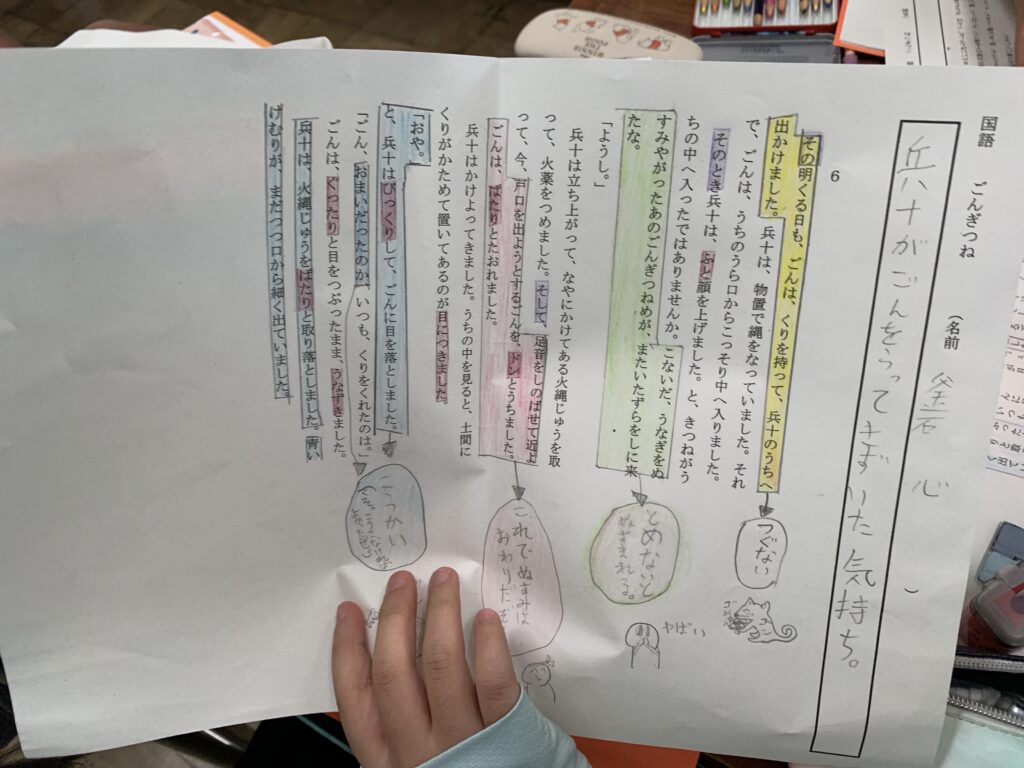 国語 ごんぎつね (名前 釜石 心 )
兵十がごんをうってきずいた気持ち。
6
その明くる日も、ごんは、くりを持って、兵十のうちへ
出かけました。兵十は、物置で縄をなっていました。それ
で、ごんは、うちのうら口からこっそり中へ入りました。
そのとき兵十は、ふと顔を上げました。と、きつねがう
ちの中へ入ったではありませんか。こないだ、うなぎをぬ
すみやがったあのごんぎつねめが、またいたずらをしに来
たな。
「ようし。」
兵十は立ち上がって、なやにかけてある火縄じゅうを取
って、火薬をつめました。そして、足音をしのばせて近よ
って、今、戸口を出ようとするごんを、ドンとうちました。
ごんは、ばたりとたおれました。
兵十はかけよってきました。うちの中を見ると、土間に
くりがかためて置いてあるのが目につきました。
「おや。」
と、兵十はびっくりして、ごんに目を落としました。
「ごん、おまいだったのか、いつも、くりをくれたのは。」
ごんは、ぐったりと目をつぶったまま、うなずきました。
兵十は、火縄じゅうをばたりと取り落としました。青い
けむりが、まだつつ口から細く出ていました。
つぐない
とめないと
ぬすまれる。
やばい
これでぬすみは
おわりだぞ
こうかい